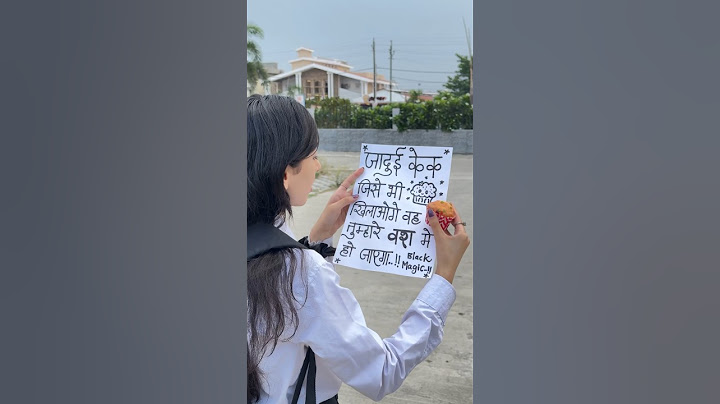 जादुई केक
जिसे भी
खिलाओगे वह
तुम्हारे वश मे
हो जाएगा..!!
Black
Magic..!!